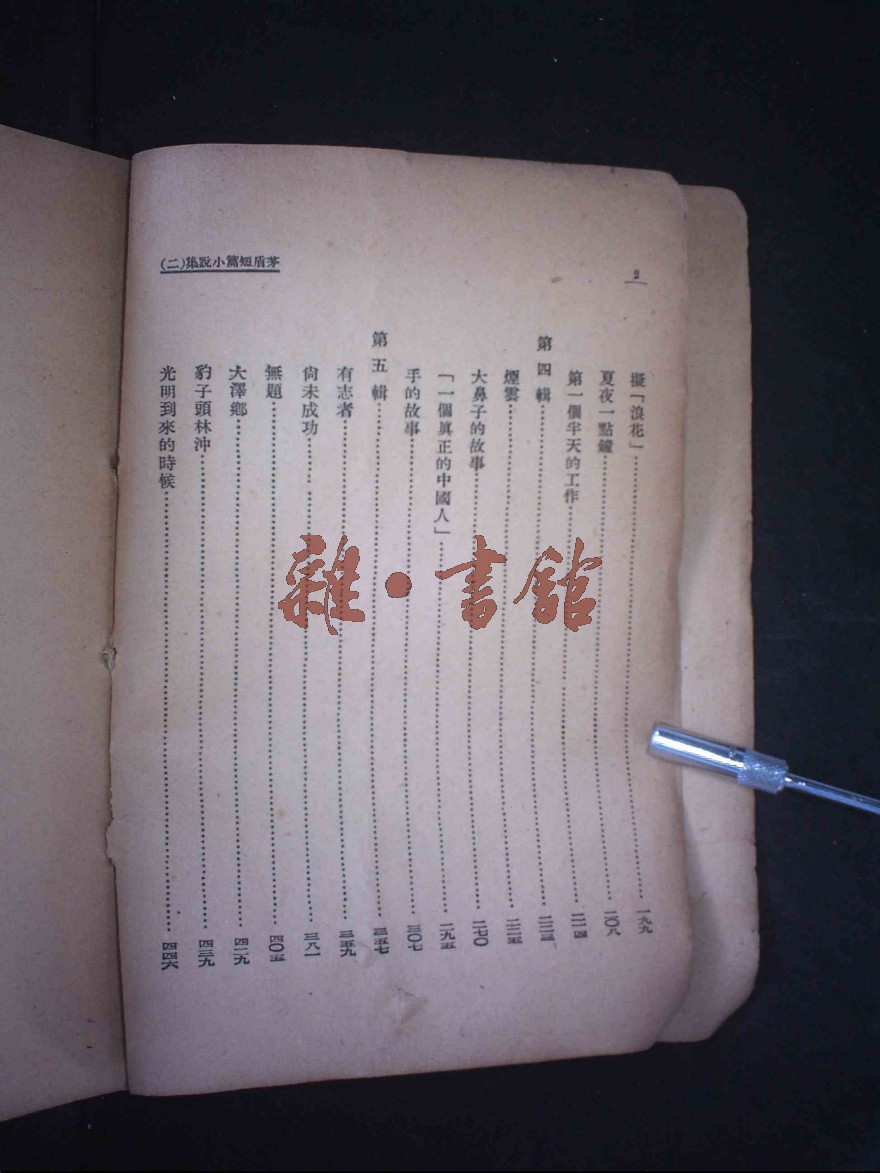 茅盾短篇小說集(二)
2
擬「浪花」………一九九
夏夜一點鐘………二〇八
第一個半天的工作………二一四
第四輯………二二三
煙雲………二二五
大鼻子的故事………二七〇
「一個眞正的中國人」………二九五
手的故事………三〇七
第五輯………三五七
有志者………三五九
尙未成功………三八一
無題………四〇五
大澤鄉………四一九
豹子頭林沖………四三九
光明到來的時候………四四六
雜·書館